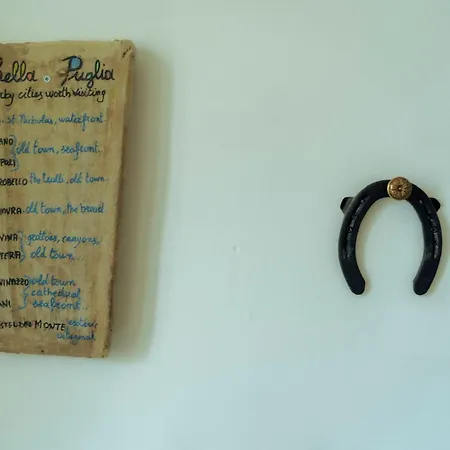 Bella . Puglia
rby cities worth visiting
. St. Nicholas, waterfront
ANO
old town, seafront..
PARI
ROBELLO the trulli, old town.
MURA. old town, the bread
VINA grottoes, canyons,
TERA old town...
VINAZZO old town
cathedral
ANI seafront..
STEL DEL MONTE esoteric